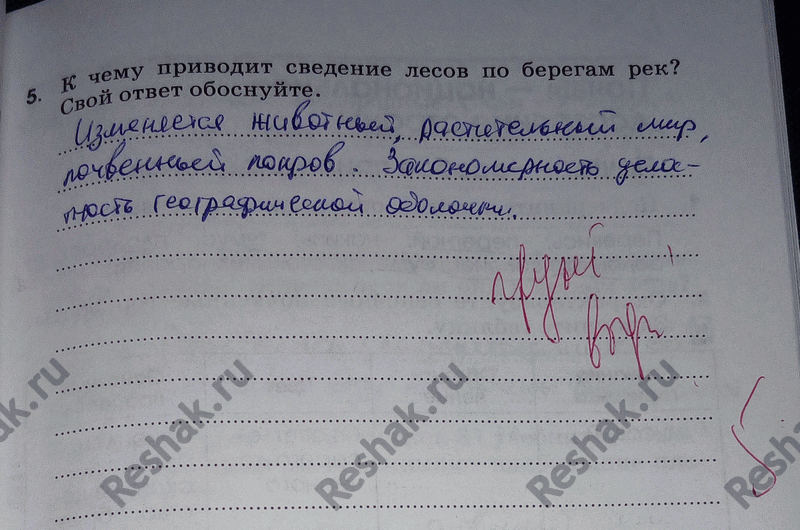 5. К чему приводит сведение лесов по берегам рек?
Свой ответ обоснуйте.
Изменяется животный, растительный мир,
почвенный покров. Закономерность целос-
тность географической оболочки.
Reshak.ru
Reshak.ru
Reshak.ru
Reshak.ru
5